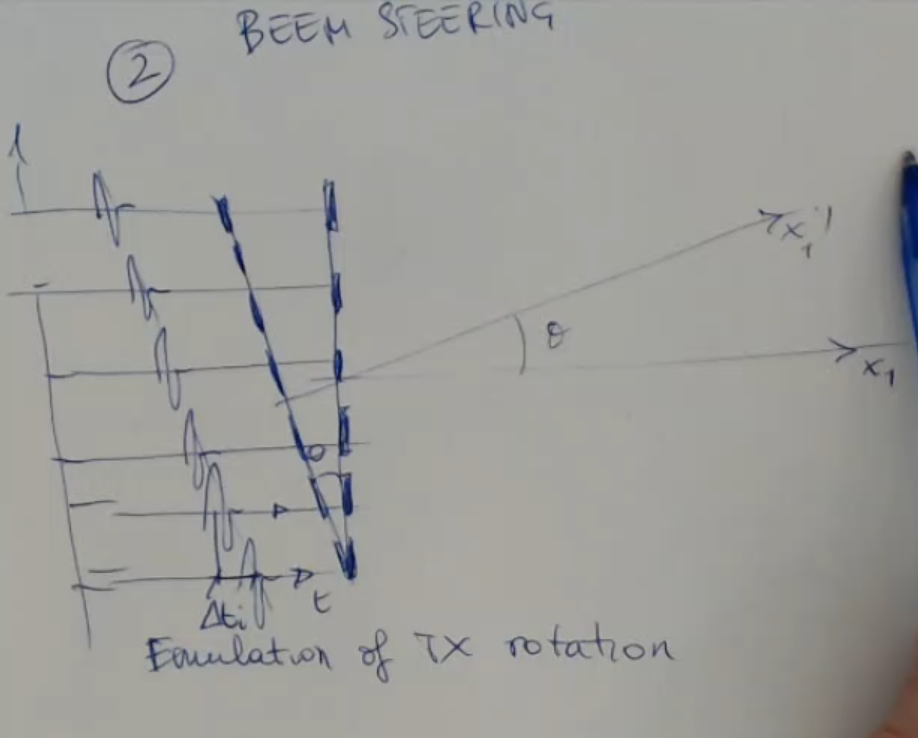 BEEM STEERING
2
x₁'
θ
x₁
θ
Δti
t
Emulation of TX rotation